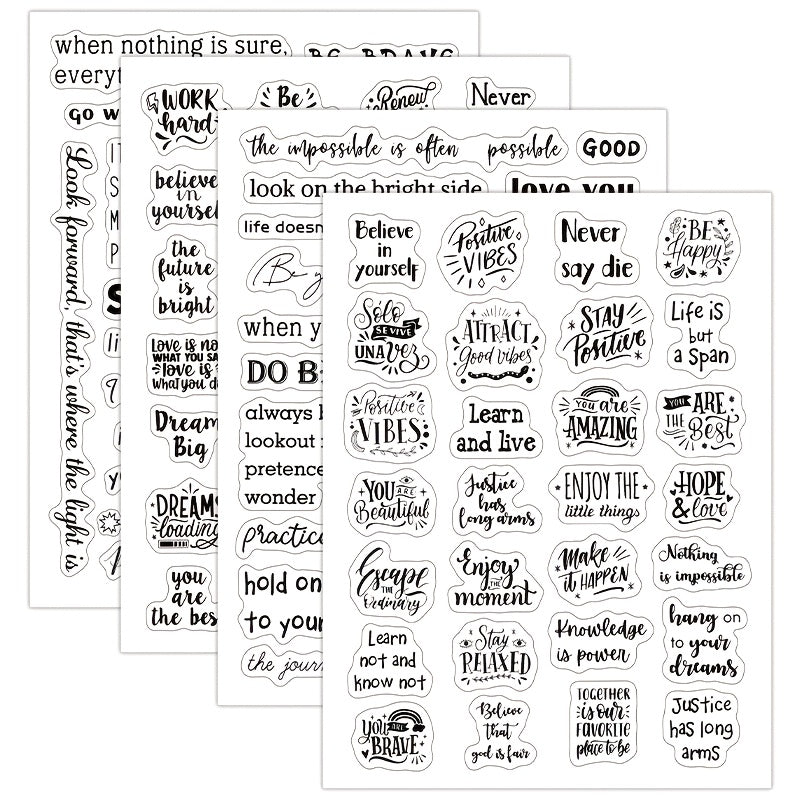 when nothing is sure,
go
Look forward, that's where the light is
WORK
hard
Be
Renew
Never
believe
in
the
future
is
bright
Love is
WHAT YOU
love is
what you
Dream
Big
DREAMS
loading
you
are
the
the impossible is often possible
GOOD
look on the bright side
love you
life
Be
when
DO
always
lookout
pretence
wonder
hold on
to
the
Believe
in
yourself
Positive
VIBES
Never
say die
BE
Happy
Solo
SE VIVE
UNA VEZ
ATTRACT
Good vibes
STAY
Positive
Life is
but
a span
Positive
VIBES
Learn
and live
YOU are
AMAZING
YOU ARE
THE Best
YOU ARE
Beautiful
Justice
has
long arms
ENJOY THE
little things
HOPE
& love
Escape
THE
Ordinary
Enjoy
THE
moment
Make
it HAPPEN
Nothing
is impossible
Learn
not and
know not
Stay
RELAXED
Knowledge
is power
hang on
to your
dreams
YOU ARE
BRAVE
Believe
that
god is fair
TOGETHER
is our
FAVORITE
place to be
Justice
has long
arms